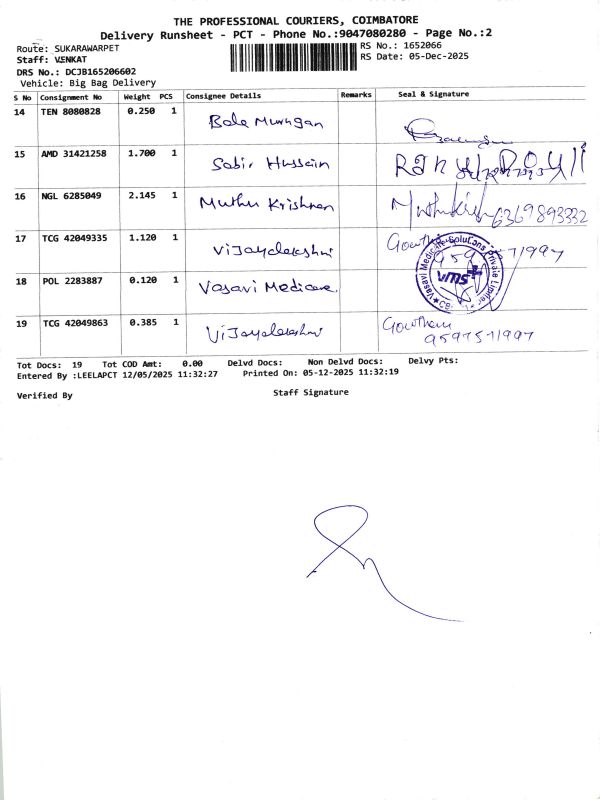 THE PROFESSIONAL COURIERS, COIMBATORE
Delivery Runsheet - PCT - Phone No.:9047080280 - Page No.:2
Route: SUKARAWARPET
RS No.: 1652066
Staff: VENKAT
RS Date: 05-Dec-2025
DRS No.: DCJB165206602
Vehicle: Big Bag Delivery
S No Consignment No Weight PCS Consignee Details Remarks Seal & Signature
14 TEN 8080828 0.250 1 Bala Murugan
15 AMD 31421258 1.700 1 Sabir Hussain
16 NGL 6285049 2.145 1 Muthu Krishnan 6369893332
17 TCG 42049335 1.120 1 Vijayalakshmi
18 POL 2283887 0.120 1 Vasavi Medicare Vasavi Medicare Solutions Private Limited vms
19 TCG 42049863 0.385 1 Vijayalakshmi Gowtham
9597571997
Tot Docs: 19 Tot COD Amt: 0.00 Delvd Docs: Non Delvd Docs: Delvy Pts:
Entered By :LEELAPCT 12/05/2025 11:32:27 Printed On: 05-12-2025 11:32:19
Verified By Staff Signature